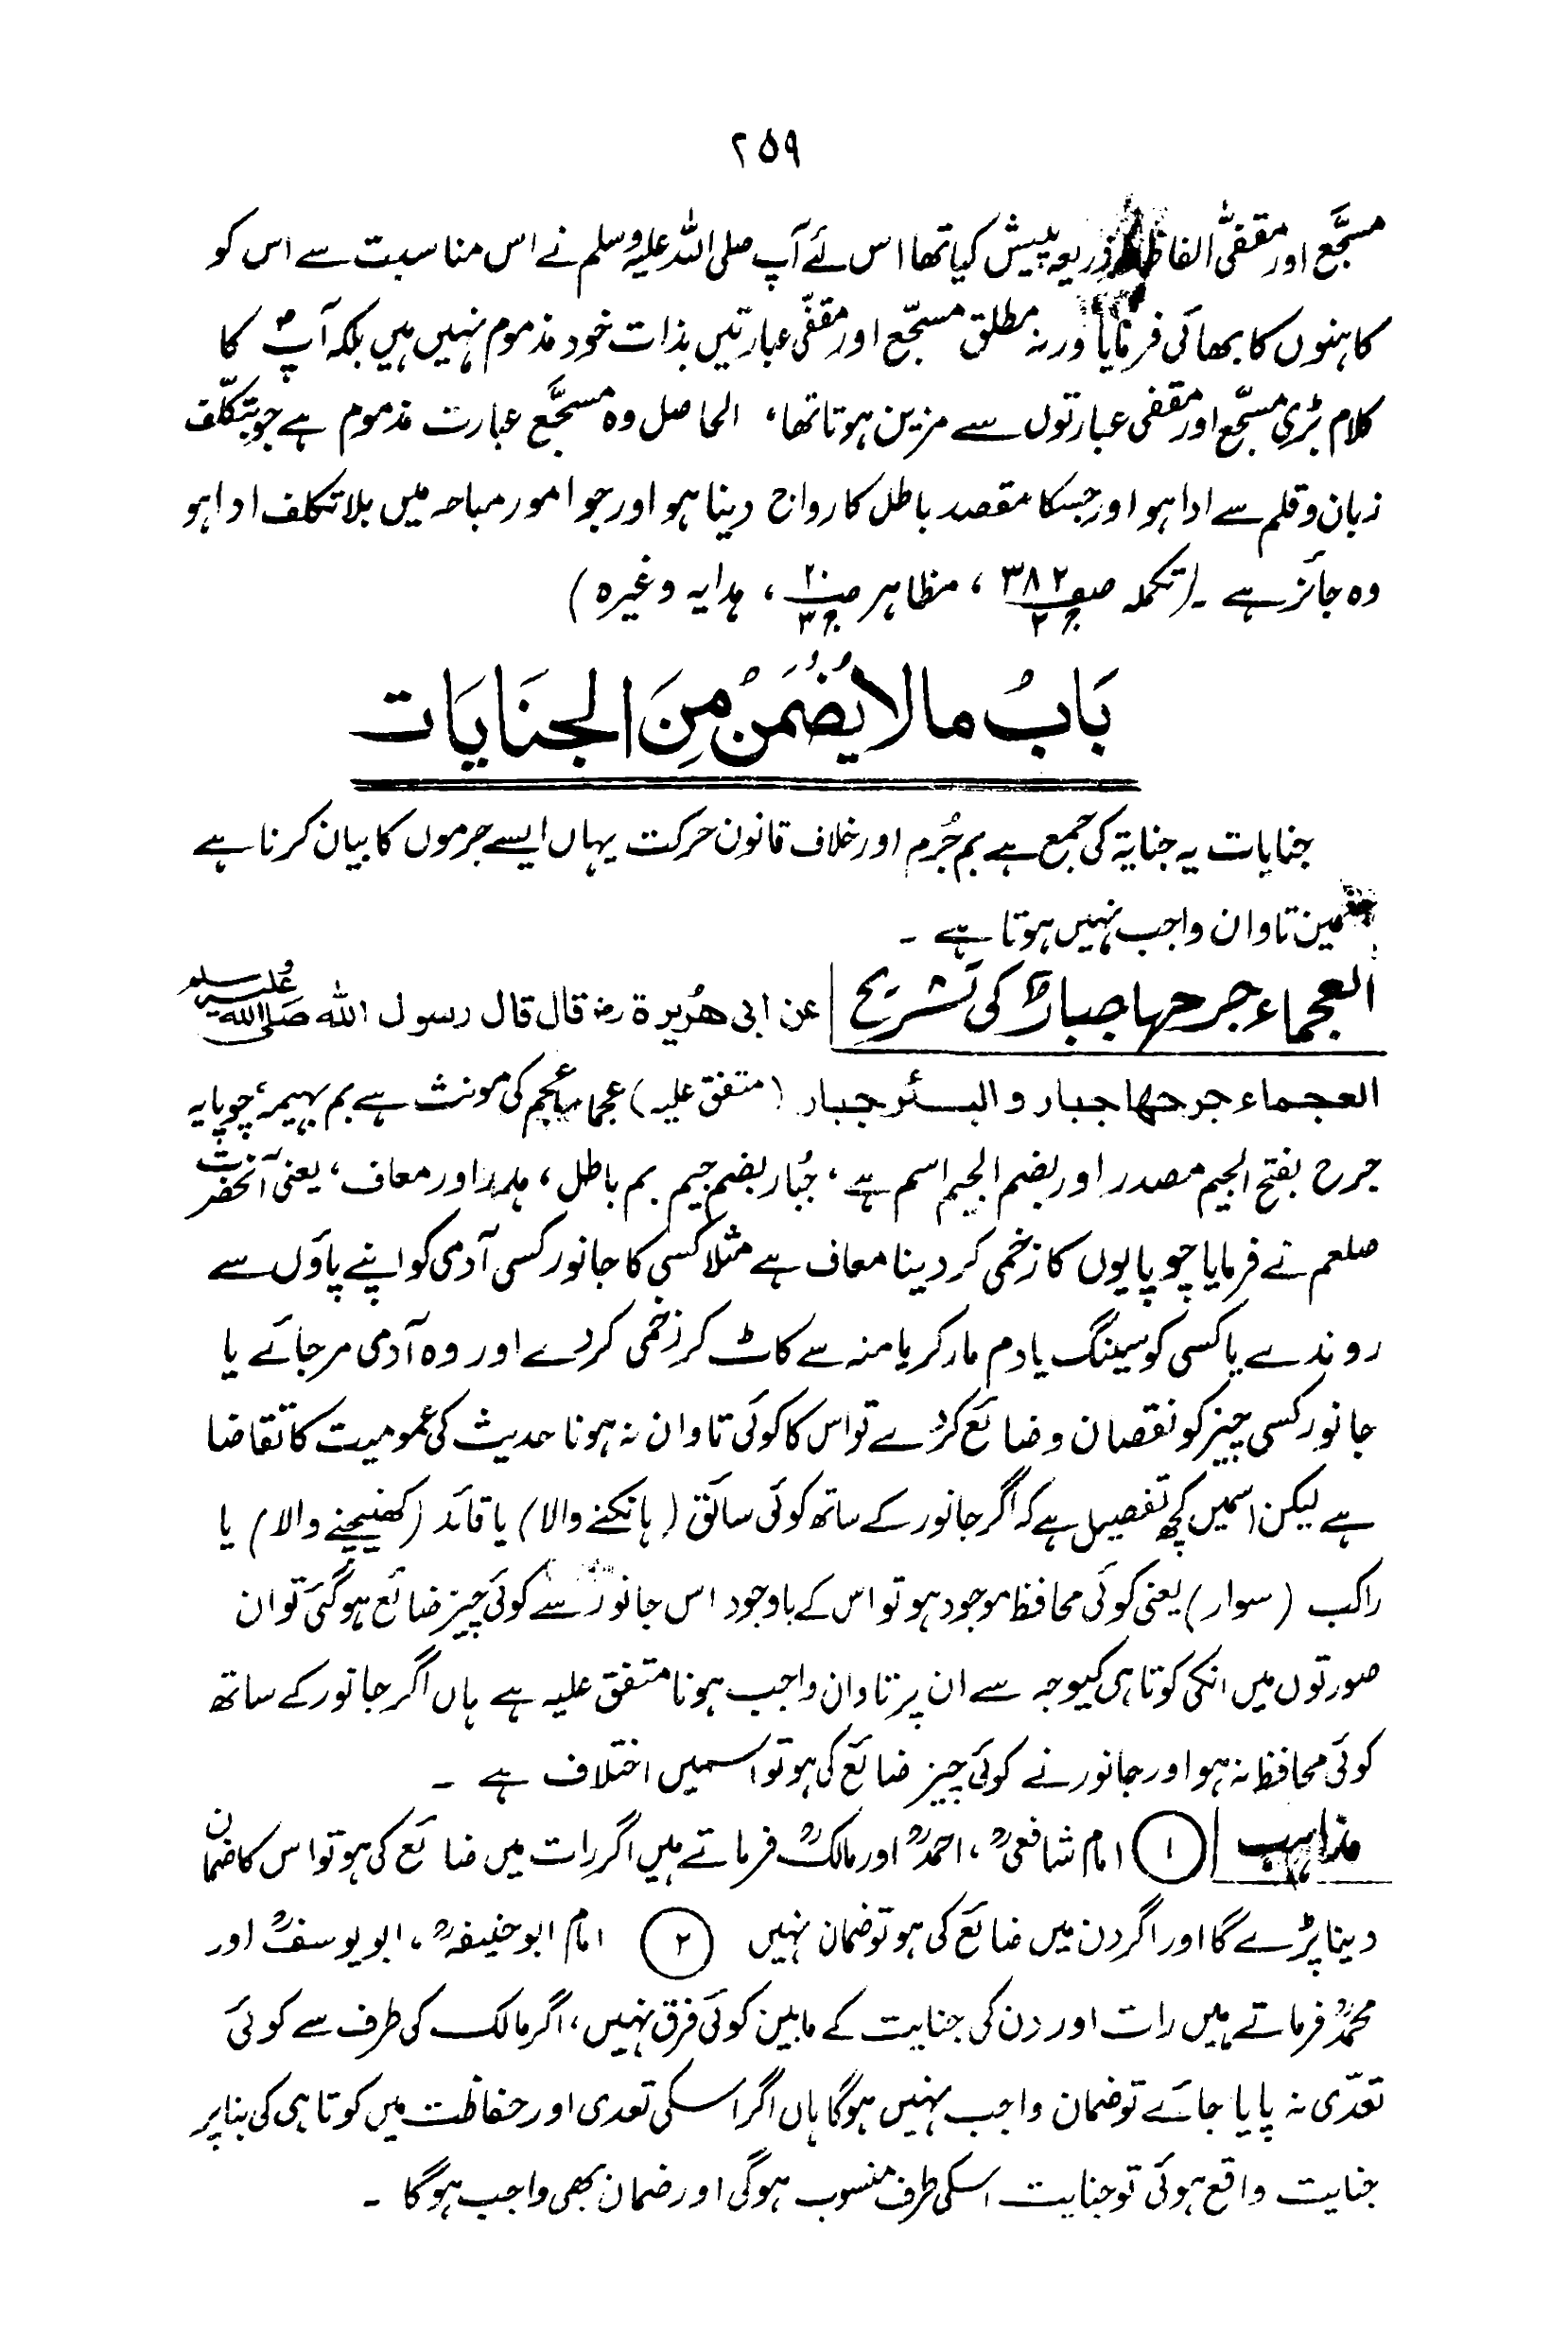 ۲۵۹
مسجَّع اور مقفیّٰ الفاظ ذریعہ پیش کیا تھا اس لئے آپ صلی اللہ علیہ وسلم نے اس مناسبت سے اس کو
کاہنوں کا بھائی فرمایا ورنہ مطلق مسجّع اور مقفّی عبارتیں بذات خود مذموم نہیں ہیں بلکہ آپؐ کا
کلام بڑی مسجّع اور مقفی عبارتوں سے مزین ہوتا تھا، الحاصل وہ مسجَّع عبارت مذموم ہے جو بتکلّف
زبان و قلم سے ادا ہو اور جسکا مقصد باطل کا رواج دینا ہو اور جو امور مباحہ میں بلا تکلف ادا ہو
وہ جائز ہے ۔ (تکملہ صفـ ۳۸۲ جـ ۲ ، مظاہر صـ ۲۰ جـ ۳ ، ہدایہ وغیرہ )
بَابُ مالا یُضْمَنُ مِنَ الجنَایَات
جنایات یہ جنایۃ کی جمع ہے بم جُرم اور خلاف قانون حرکت یہاں ایسے جرموں کا بیان کرنا ہے
جنمین تاوان واجب نہیں ہوتا ہے ۔
العجماء جرحہا جبارٌ کی تشریح | عن ابی ھُریرۃ رضـ قال قال رسول اللہ صلی اللہ علیہ وسلم
العجماء جرحھا جبار والبئر جبار (متفق علیہ) عجماء عجم کی مونث ہے بم بہیمہ، چوپایہ
جرح بفتح الجیم مصدر اور بضم الجیم اسم ہے ، جُبار بضم جیم بم باطل، ہدر اور معاف، یعنی آنحضرت
صلعم نے فرمایا چوپایوں کا زخمی کردینا معاف ہے مثلا کسی کا جانور کسی آدمی کو اپنے پاؤں سے
روندے یا کسی کو سینگ یا دم مار کر یا منہ سے کاٹ کر زخمی کردے اور وہ آدمی مرجائے یا
جانور کسی چیز کو نقصان و ضائع کردے تو اس کا کوئی تاوان نہ ہونا حدیث کی عمومیت کا تقاضا
ہے لیکن اسمیں کچھ تفصیل ہے کہ اگر جانور کے ساتھ کوئی سائق (ہانکنے والا) یا قائد (کھینچنے والا) یا
راکب (سوار) یعنی کوئی محافظ موجود ہو تو اس کے باوجود اس جانور سے کوئی چیز ضائع ہوگئی تو ان
صورتوں میں انکی کوتاہی کیوجہ سے ان پر تاوان واجب ہونا متفق علیہ ہے ہاں اگر جانور کے ساتھ
کوئی محافظ نہ ہو اور جانور نے کوئی چیز ضائع کی ہو تو اسمیں اختلاف ہے ۔
مذاہب | ① امام شافعیؒ ، احمدؒ اور مالکؒ فرماتے ہیں اگر رات میں ضائع کی ہو تو اس کا ضمان
دینا پڑے گا اور اگر دن میں ضائع کی ہو تو ضمان نہیں ② امام ابوحنیفہؒ ، ابو یوسفؒ اور
محمدؒ فرماتے ہیں رات اور دن کی جنایت کے مابین کوئی فرق نہیں، اگر مالک کی طرف سے کوئی
تعدّی نہ پایا جائے تو ضمان واجب نہیں ہوگا ہاں اگر اسکی تعدی اور حفاظت میں کوتاہی کی بنا پر
جنایت واقع ہوئی تو جنایت اسکی طرف منسوب ہوگی اور ضمان بھی واجب ہوگا ۔